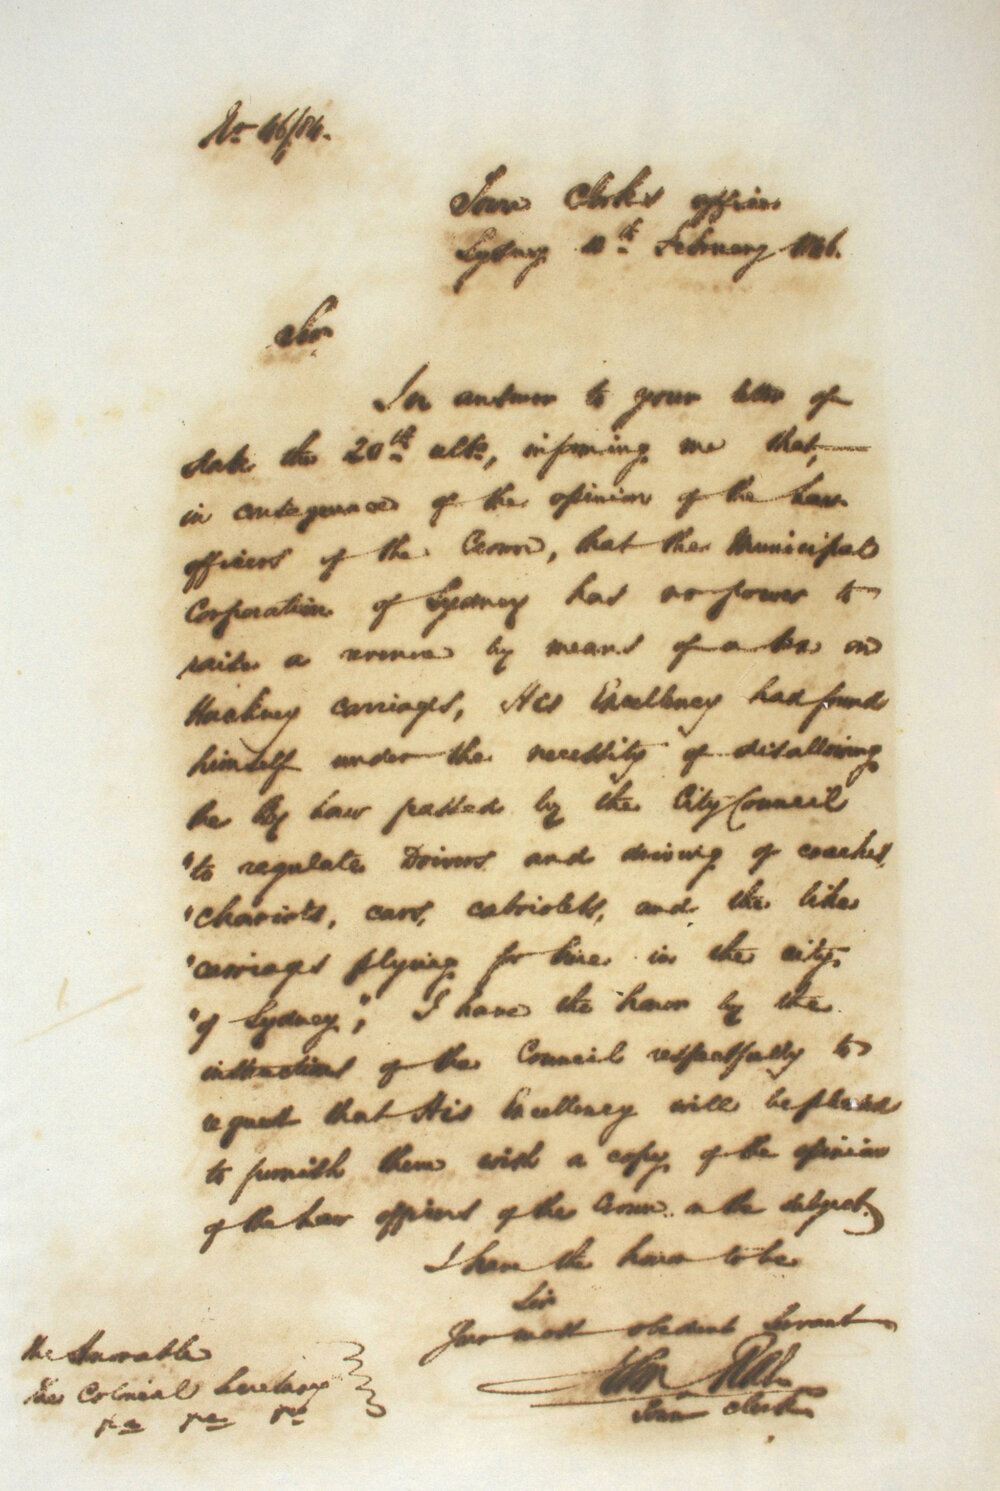 No 46/84.
Town Clerk's office
Sydney 10th February 1846.
Sir
In answer to your letter of
date the 20th ulto, informing me that,
in consequence of the opinion of the Law
officers of the Crown, that the Municipal
Corporation of Sydney has no power to
raise a revenue by means of a tax on
Hackney carriages, His Excellency had found
himself under the necessity of disallowing
the By Law passed by the City Council
"to regulate Drivers and driving of coaches,
"Chariots, cars, cabriolets, and the like
"carriages plying for hire in the city
"of Sydney", I have the honor by the
instructions of the Council respectfully to
request that His Excellency will be pleased
to furnish them with a copy of the opinion
of the Law officers of the Crown on the subject.
I have the honor to be
Sir
Your most obedient Servant
Town Clerk
The Honorable
The Colonial Secretary
&c &c &c